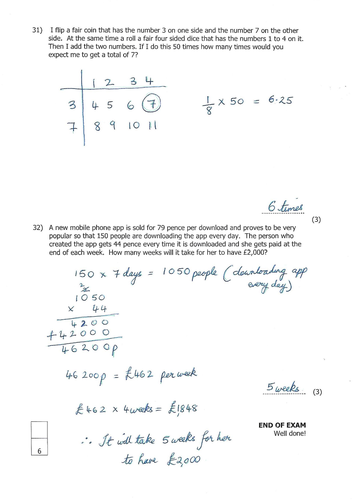 31) I flip a fair coin that has the number 3 on one side and the number 7 on the other
side. At the same time a roll a fair four sided dice that has the numbers 1 to 4 on it.
Then I add the two numbers. If I do this 50 times how many times would you
expect me to get a total of 7?
1 2 3 4
3 4 5 6 7
7 8 9 10 11
1/8 × 50 = 6.25
6 times
(3)
32) A new mobile phone app is sold for 79 pence per download and proves to be very
popular so that 150 people are downloading the app every day. The person who
created the app gets 44 pence every time it is downloaded and she gets paid at the
end of each week. How many weeks will it take for her to have £2,000?
150 × 7 days = 1050 people (downloading app
every day)
1050
× 44
4200
+42000
46200p
46200p = £462 per week
5 weeks
(3)
£462 × 4 weeks = £1848
∴ It will take 5 weeks for her
to have £2,000
END OF EXAM
Well done!
6